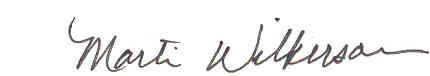 Marti Wilkerson